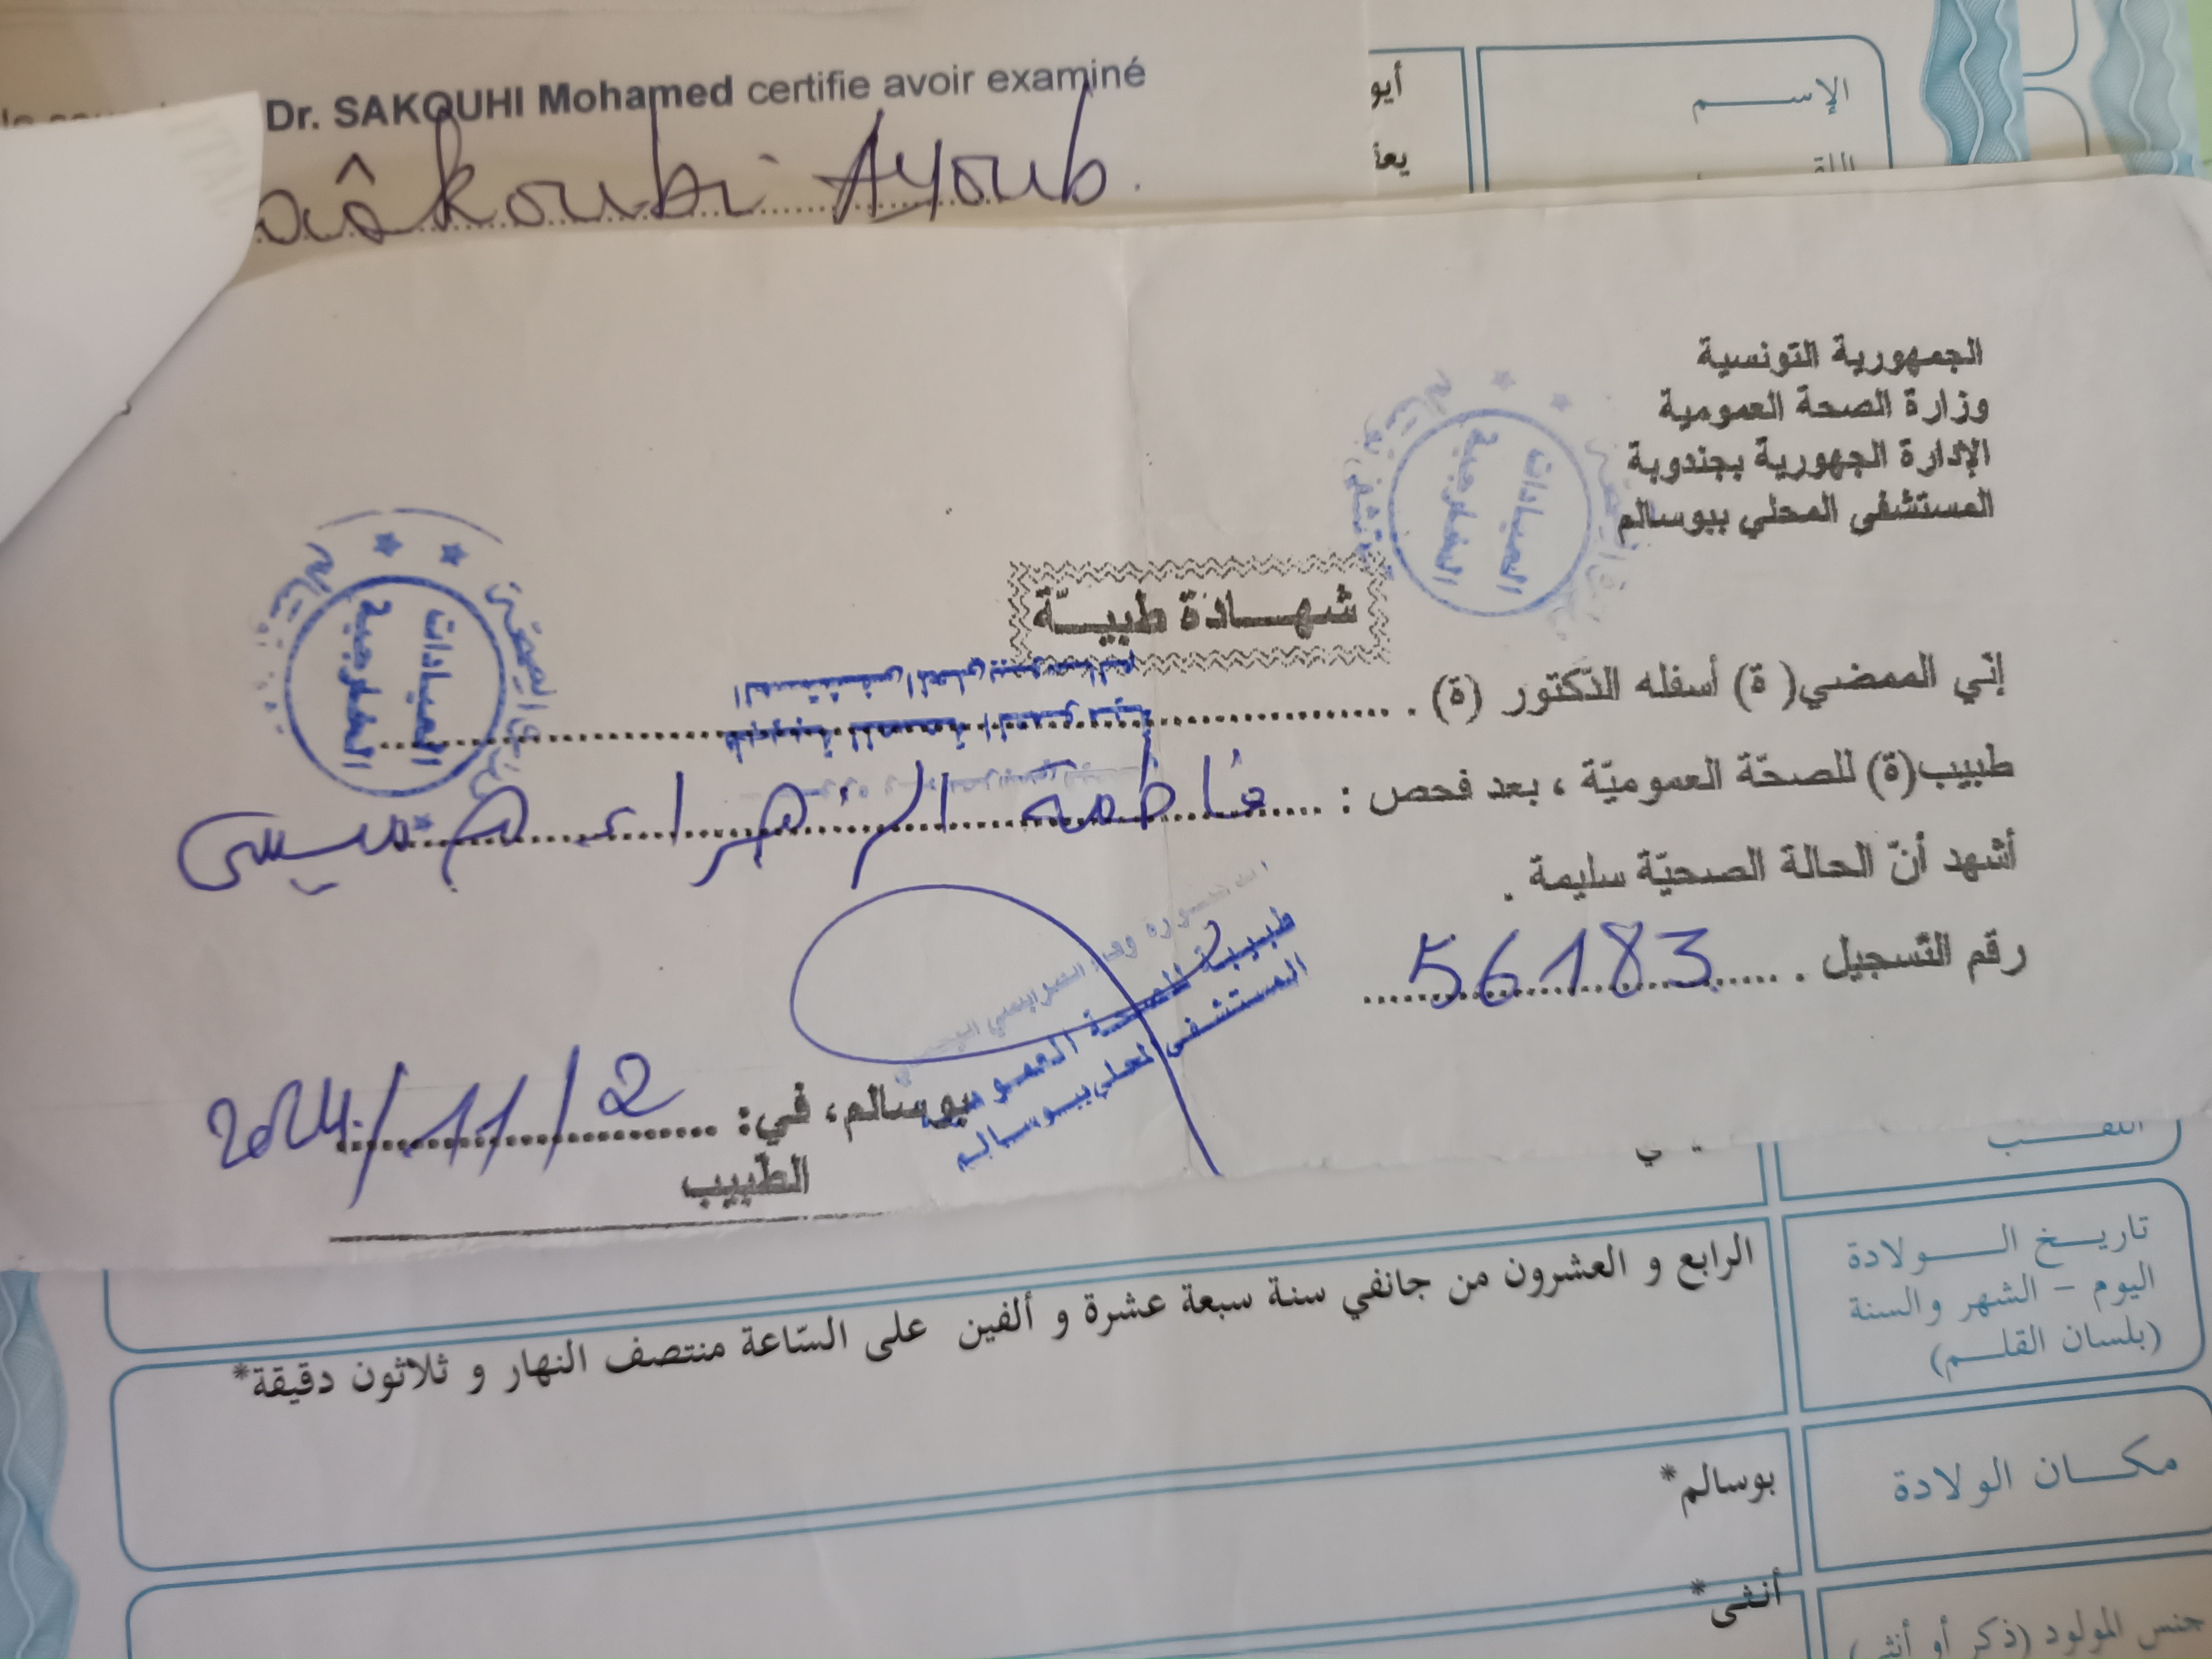 Dr. SAKOUHI Mohamed certifie avoir examiné
Ayoub
الإســـــم
أيو
يعا
الجمهورية التونسية
وزارة الصحة العمومية
الإدارة الجهورية بجندوبة
المستشفى المحلي ببوسالم
العيادات
الخارجية
شهـــادة طبيـــّة
العيادات
الخارجية
إنّي الممضي( ة) أسفله الدّكتور (ة) .
المستشفى المحلي ببوسالم
طبيب(ة) للصحّة العموميّة ، بعد فحص : فاطمة الزهراء
أشهد أنّ الحالة الصحيّة سليمة .
رقم التّسجيل . 56183
طبيبة للصحة العمومية
المستشفى المحلي ببوسالم
بوسالم، في: 2024/11/2
الطّبيب
اللقــب
تاريــخ الـــــولادة
اليوم - الشهر والسنة
(بلسان القلـــم)
الرابع و العشرون من جانفي سنة سبعة عشرة و ألفين على السّاعة منتصف النهار و ثلاثون دقيقة*
مكـــان الولادة
بوسالم*
جنس المولود (ذكر أو أنثى)
أنثى*